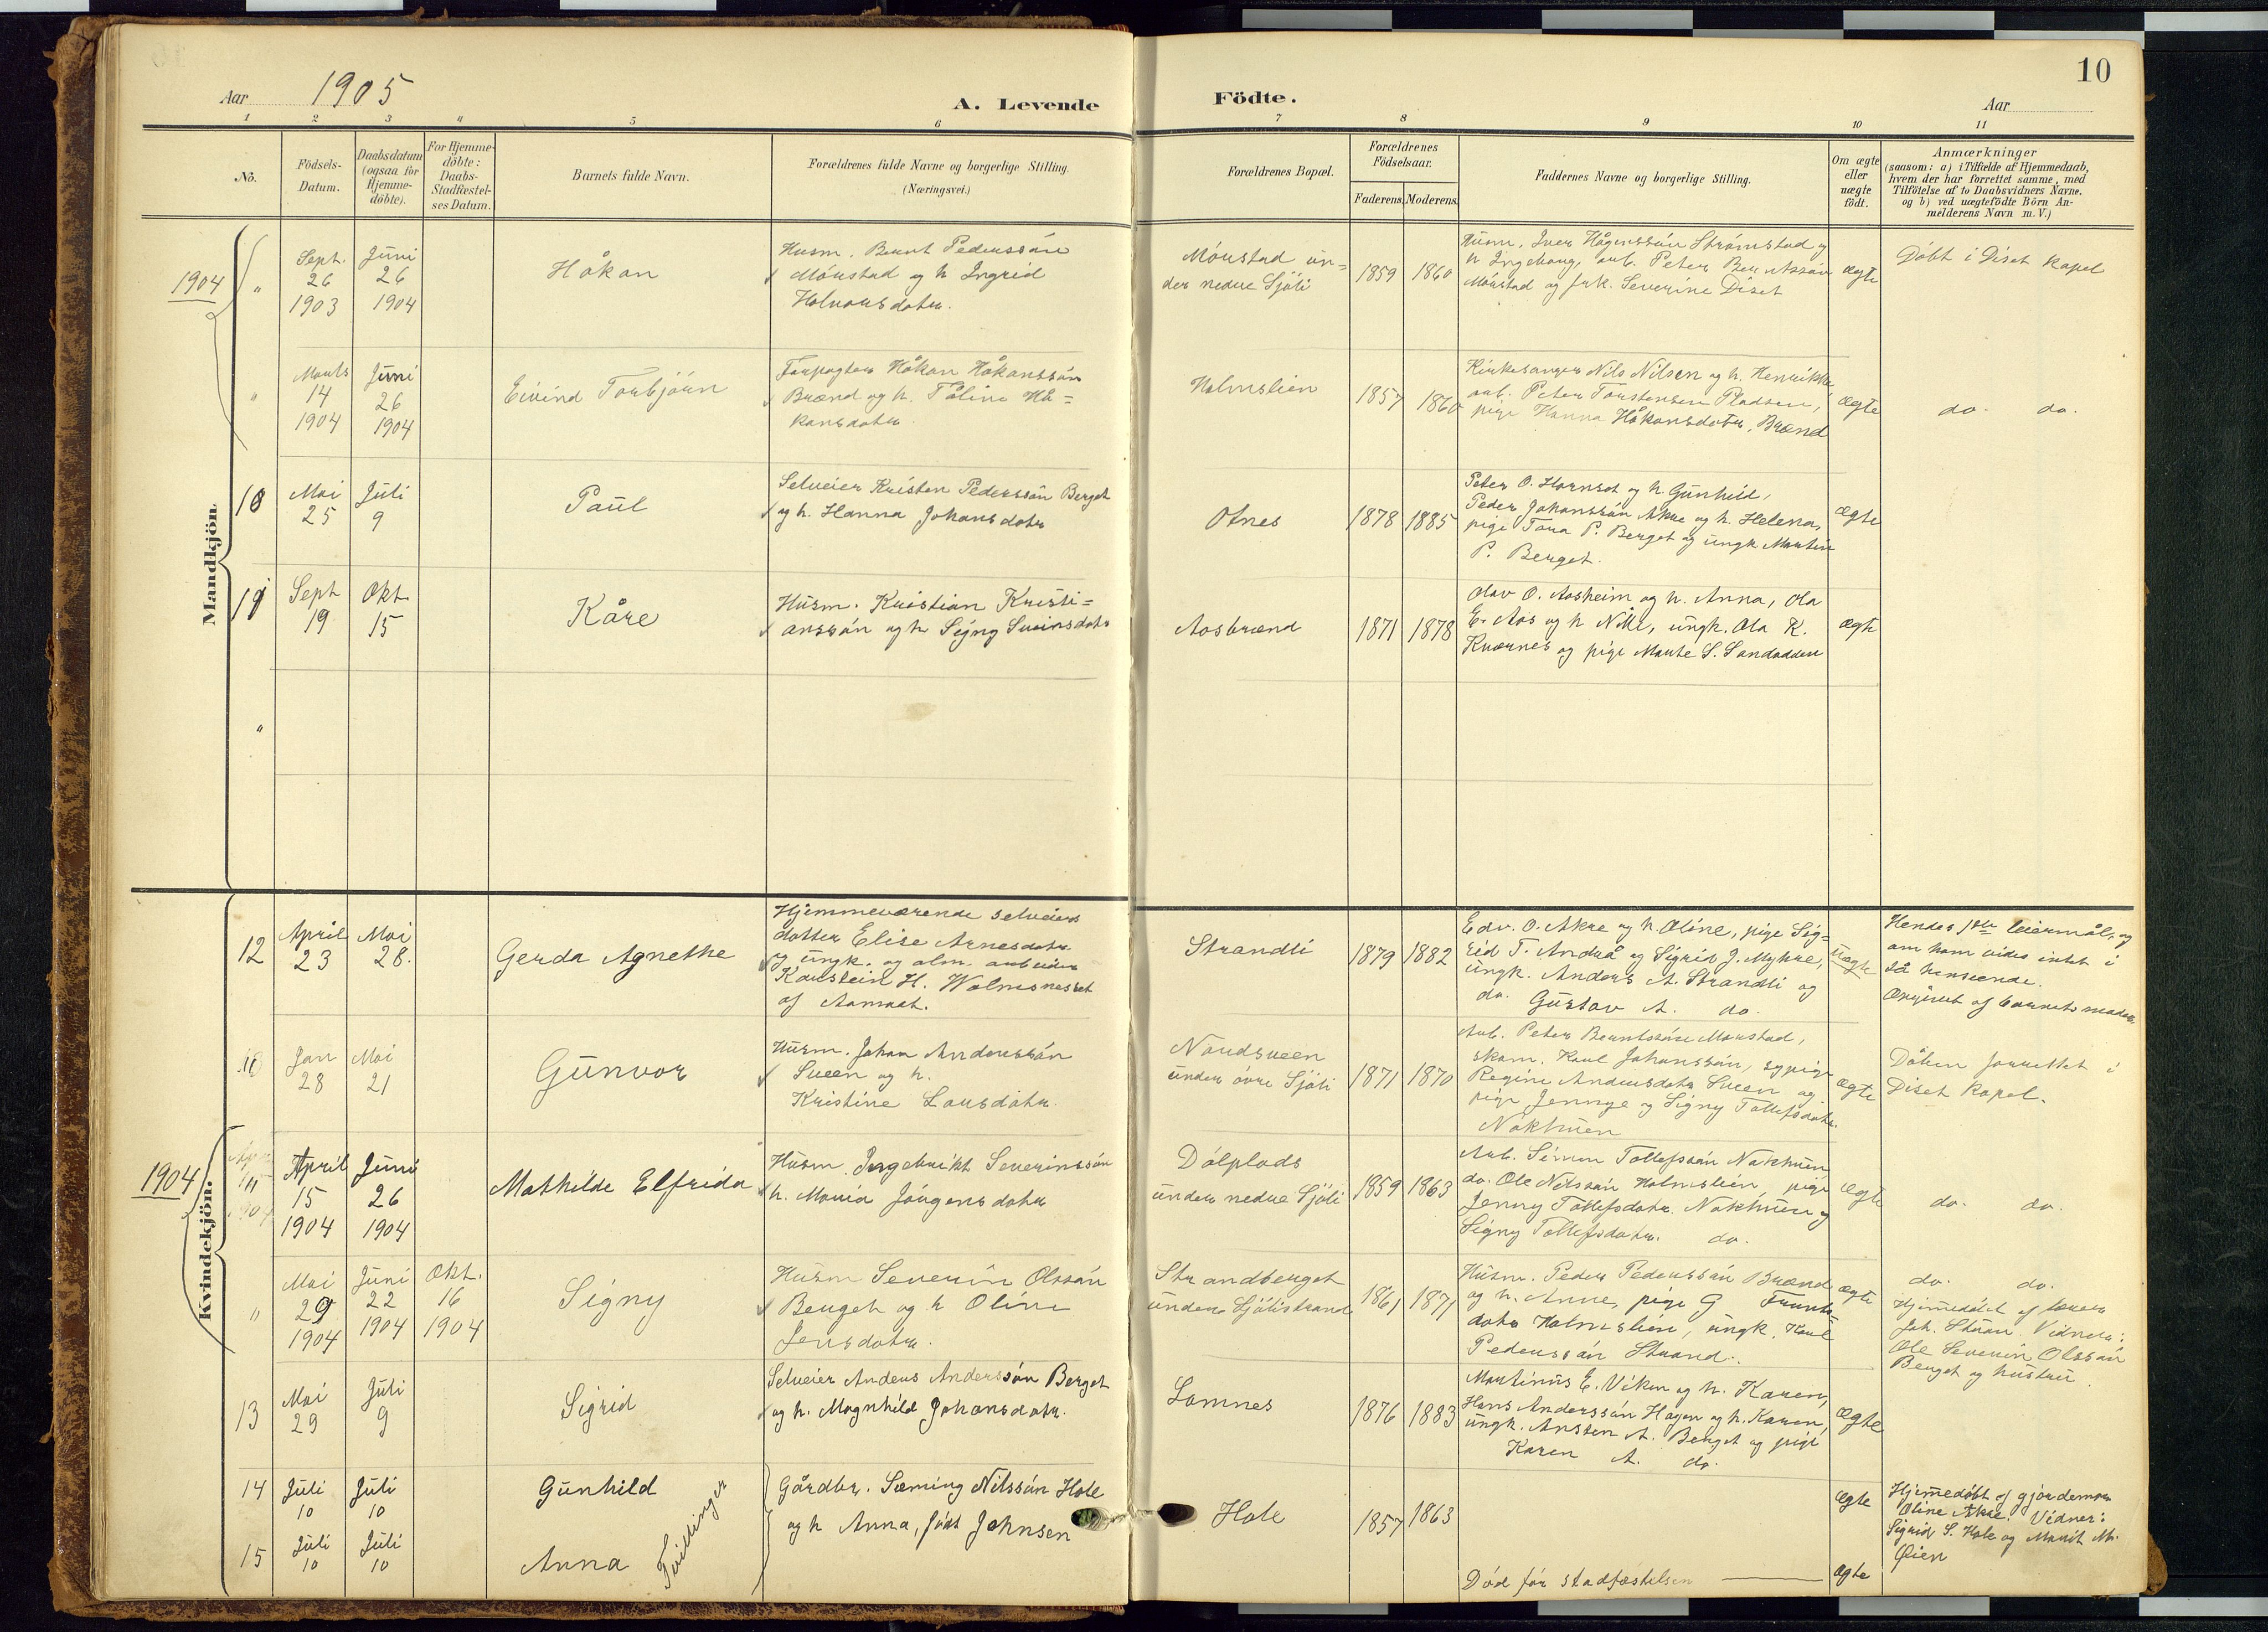 10
Aar 1905
A. Levende
Födte.
Aar
1 2 3 4 5 6 7 8 9 10 11
No.
Födsels-
Datum.
Daabsdatum
(ogsaa for
Hjemme-
döbte).
For Hjemme-
döbte:
Daabs-
Stadfæstel-
ses Datum.
Barnets fulde Navn.
Forældrenes fulde Navne og borgerlige Stilling.
(Næringsvei.)
Forældrenes Bopæl.
Forældrenes
Födselsaar.
Faderens. Moderens.
Faddernes Navne og borgerlige Stilling.
Om ægte
eller
uægte
födt.
Anmærkninger
(saasom: a) i Tilfælde af Hjemmedaab,
hvem der har forrettet samme, med
Tilföielse af to Daabsvidners Navne.
og b) ved uægtefödte Börn An-
melderens Navn m. V.)
Mandkjön.
1904
"
Sept.
26
1903
Juni
26
1904
Håkon
Husm. Bernt Pederssön
Mörstad og h Ingrid
Halvorsdotr.
Mörstad un=
der nedre Sjöli
1859 1860
Husm. Iver Hågenssön Strömstad og
h Ingeborg, arb. Peter Berntssön
Mörstad og frk. Severine Diset
ægte
Döbt i Diset kapel
"
Marts
14
1904
Juni
26
1904
Eivind Torbjörn
Forpagter Håkon Håkonssön
Brænd og h. Föline Hå=
konsdotr
Holmslien
1857 1860
Kirkesanger Nils Nilsen og h. Henrikke
arb. Peter Torstensen Pladsen,
pige Hanna Håkonsdotr. Brænd
ægte
do. do.
10
Mai
25
Juli
9
Paul
Selveier Kristen Pederssön Berget
og h. Hanna Johansdotr
Otnes
1878 1885
Peter O. Hornset og h. Gunhild,
Peder Johanssön Akre og h. Helena,
pige Tora P. Berget og ungk Martin
P. Berget.
ægte
11
Sept
19
Okt.
15
Kåre
Husm. Kristian Kristi=
anssön og h Signy Sveinsdotr
Aosbrænd
1871 1878
Olav O. Aosheim og h. Anna, Ola
E. Aos og h Nille, ungk. Ola K.
Kværnes og pige Marte S. Sandodden
ægte
"
Kvindekjön.
12
April
23
Mai
28.
Gerda Agnethe
Hjemmeværende selveiers
dotter Elise Arnesdotr
og ungk. og alm. arbeider
Karstein H. Holmsnesset
af Aamot.
Strandli
1879 1882
Edv. O. Akre og h. Oline, pige Sig=
rid T. Andrå og Sigrid J. Mykre,
ungk. Anders A. Strandli og
do. Gustav A. do.
uægte
Hendes 1ste leiermål, og
om ham vides intet i
så henseende.
Angivet af barnets moder.
10
Jan
28
Mai
21
Gunvor
Husm. Johan Anderssön
Sveen og h.
Kristine Larsdotr.
Nordsveen
under övre Sjöli
1871 1870
Arb. Peter Berntssön Morstad,
skom. Karl Johanssön, sypige
Regine Andersdotr Sveen og
pige Jennye og Signy Tollefsdotr.
Nokhuen
ægte
Dåben forrettet i
Diset kapel.
1904
April
15
1904
Juni
26
1904
Mathilde Elfrida
Husm Ingebrikt Severinssön
h. Maria Jörgensdotr
Dölplads
under nedre Sjöli
1859 1863
Arb. Simen Tollefssön Nokhuen
do. Ole Nilssön Holmslien, pige
Jenny Tollefsdotr. Nokhuen og
Signy Tollefsdotr. do.
ægte
do. do.
"
Mai
29
1904
Juni
22
1904
Okt.
16
1904
Signy
Husm Severin Olssön
Berget og h Oline
Jensdotr.
Strandberget
under Sjölistrand
1861 1871
Husm. Peder Pederssön Brænd
og h. Anne, pige G
dotr Holmslien, ungk. Karl
Pederssön Strand.
ægte
do. do.
Hjemmedöbt af lærer
Joh. Strøm. Vidner:
Ole Severin Olssön
Berget og hustru.
13
Mai
29
Juli
9
Sigrid
Selveier Anders Anderssön Berget
og h. Magnhild Johansdotr.
Lomnes
1876 1883
Martinus E. Viken og h. Karen,
Hans Anderssön Hagen og h. Karen,
ungk. Ansten A. Berget og pige
Karen A. do.
ægte
14
Juli
10
Juli
10
Gunhild
Tvillinger
Gårdbr. Sæming Nilssön Hole
og h Anna, født Johnsen
Hole
1857 1863
ægte
Hjemmedöbt af gjordemor
Oline Akre. Vidner:
Sigrid S. Hole og Marit M.
Øien
15
Juli
10
Juli
10
Anna
Död för stadfæstelsen
ægte